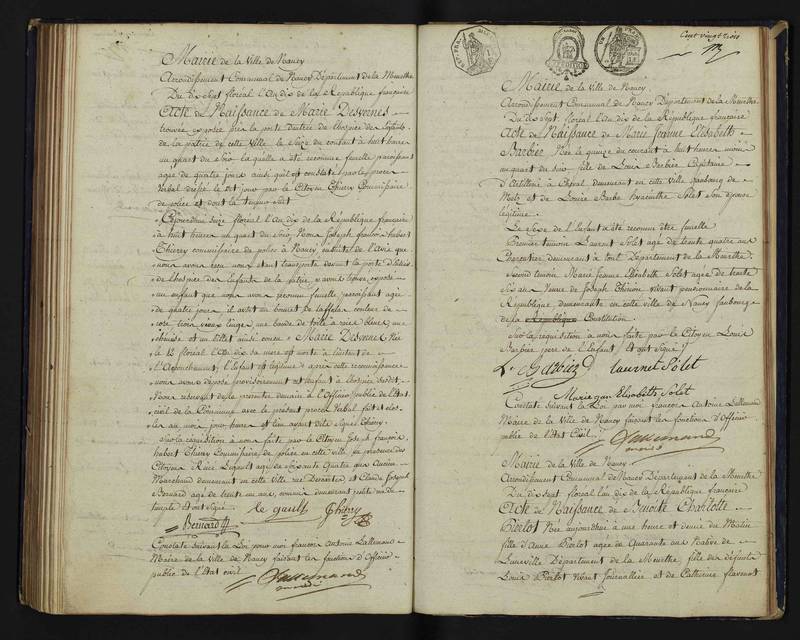 Mairie de la Ville de Nancy
Arrondissement Communal de Nancy Département de la Meurthe
Du dix Sept floréal l'An dix de la République française
Acte de Naissance de Marie Desvoines
trouvée exposée près la porte d'entrée de l'hospice des Enfants
de la patrie de cette Ville, le Seize du courant à huit heures
un quart du Soir laquelle a été reconnue femelle paroissant
agée de quatre jours ainsi qu'il est constaté par le procès
Verbal dressé le dit jour par le Citoyen Thiery Commissaire
de police et dont la teneur suit
Cejourdhui Seize floréal l'An dix de la République française
à huit heures un quart du Soir, Nous Joseph françois hubert
Thiery commissaire de police à Nancy
nous étant transporté devant la porte
de l'hospice des Enfants de la patrie, y avons trouvé exposé
un enfant que nous avons reconnu femelle paroissant agée
de quatre jours, il avoit un bonnet de taffetas couleur de
rose, trois langes une bande de toile à raies bleues, une
chemise et un billet ainsi conçu Marie Desvoines Née
le 12 floréal l'An dix sa mere est morte à l'instant de
l'Accouchement, l'Enfant est légitime, après cette reconnoissance
nous avons déposé provisoirement cet enfant à l'hospice susdit
Nous réservant de le présenter demain à l'Officier public de l'Etat
civil de la Commune avec le présent procès Verbal fait et clos
les an, mois, jour, heure et lieu avant dits Signé Thiery
Sur la réquisition à nous faite par le Citoyen Joseph françois
hubert Thiery Commissaire de police en cette ville, en présence des
Citoyens Legault agé de soixante Quatre ans Ancien
Marchand demeurant en cette Ville rue et Claude Joseph
Bernard agé de trente un ans, demeurant petite rue du
temple et ont signé. le gault Thiery
Bernard
Constaté Suivant la Loi par moi françois Antoine Lallemand
Maire de la Ville de Nancy faisant les fonctions d'Officier
public de l'Etat civil
Lallemand
Cent vingt trois
Mairie de la Ville de Nancy
Arrondissement Communal de Nancy Département de la Meurthe
Du dix Sept floréal l'An dix de la République française
Acte de Naissance de Marie Jeanne Elisabeth
Barbier Née le quinze du courant à huit heures moins
un quart du Soir fille de Louis Barbier Capitaine
d'Artillerie à Cheval demeurant en cette Ville faubourg de
Metz et de Louise Barbe hyacinthe Solet Son épouse
légitime.
Le Sexe de l'Enfant a été reconnu être femelle
Premier témoin Laurent Solet agé de trente quatre ans
Charcutier demeurant à toul Département de la Meurthe.
Second témoin Marie Jeanne Elisabeth Solet agée de trente
Six ans Veuve de Joseph vivant pensionnaire de la
République demeurante en cette ville de Nancy faubourg
de la République Constitution.
Sur la requisition à nous faite par le Citoyen Louis
Barbier pere de l'Enfant Et ont Signé
L. Barbier Laurent Solet
Marie jan Elisabeth Solet
Constaté Suivant la Loi par moi françois Antoine Lallemand
Maire de la Ville de Nancy faisant les fonctions d'Officier
public de l'Etat Civil.
Lallemand
Mairie de la Ville de Nancy
Arrondissement Communal de Nancy Département de la Meurthe
Du dix Sept floréal l'An dix de la République française
Acte de Naissance de Benoite Charlotte
Pierlot Née aujourdhui à une heure et demie du Matin
fille d'Anne Pierlot agée de Quarante ans Native de
Luneville Département de la Meurthe, fille des défunts
Louis Pierlot Vivant Journallier et de Catherine